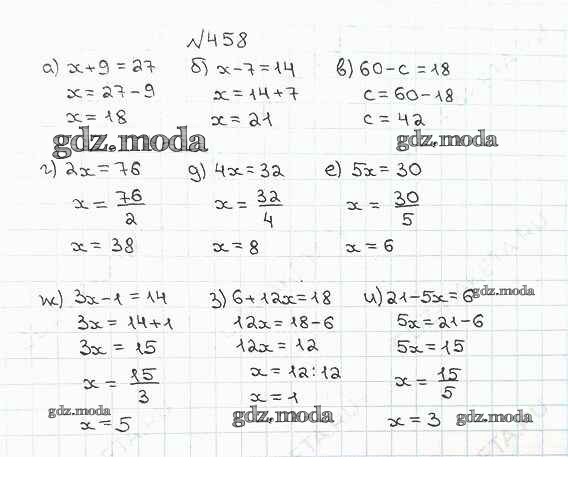 №458
а) x+9=27 б) x-7=14 в) 60-c=18
x=27-9 x=14+7 c=60-18
x=18 x=21 c=42
gdz.moda gdz.moda
г) 2x=76 д) 4x=32 е) 5x=30
x=76/2 x=32/4 x=30/5
x=38 x=8 x=6
ж) 3x-1=14 з) 6+12x=18 и) 21-5x=6 gdz.moda
3x=14+1 12x=18-6 5x=21-6
3x=15 12x=12 5x=15
x=15/3 x=12:12 x=15/5
gdz.moda x=5 x=1 x=3
gdz.moda gdz.moda